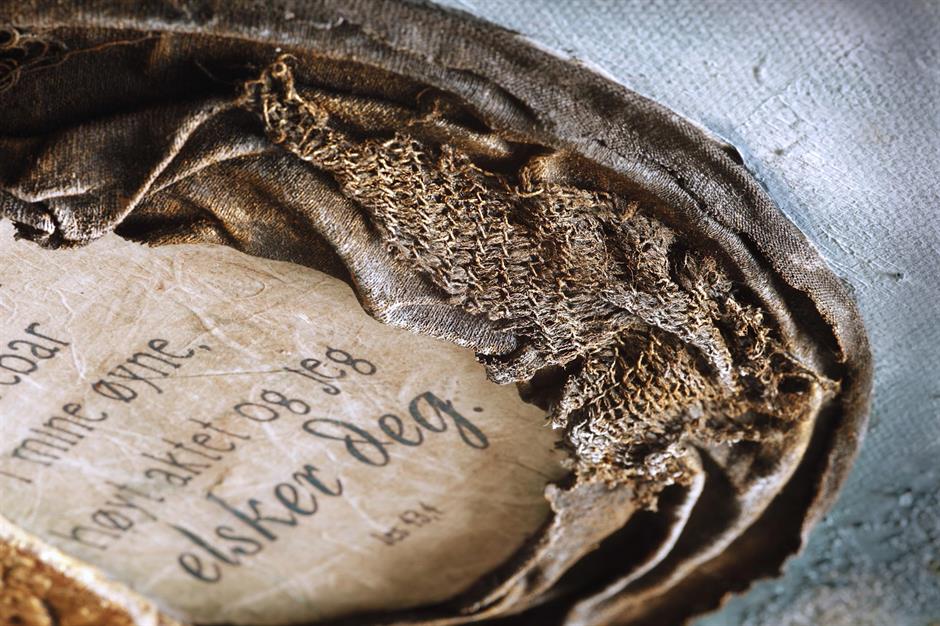 ebar
i mine øyne,
høyt aktet og jeg
elsker deg.
Jes 43,4